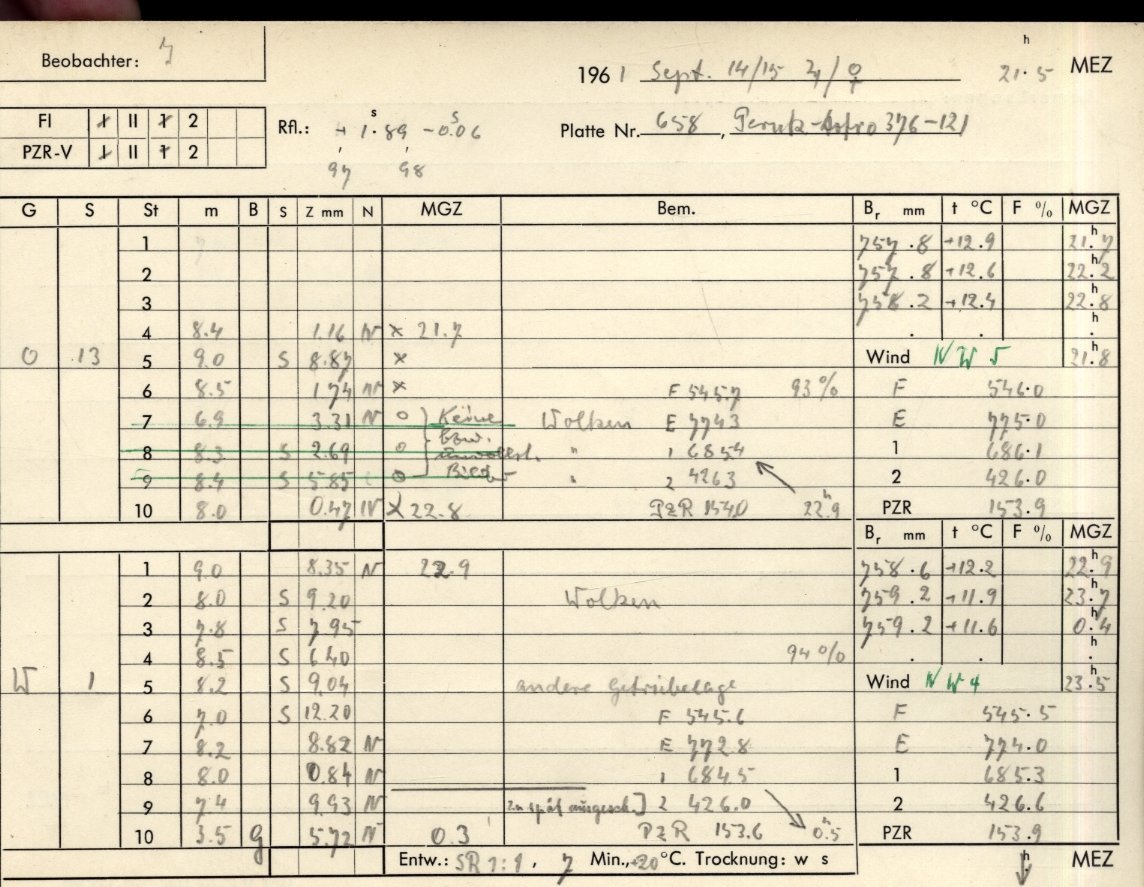 Beobachter:
1961 Sept. 14/15 ♃/♀ 21.5 h MEZ
FI 1 II 1 2
PZR-V 1 II 1 2
Rfl.: + 1.89 s -0.06 s
97 98
Platte Nr. 658, 376-121
G S St m B S Z mm N MGZ Bem. Br mm t °C F % MGZ
1 757.8 +12.9 21.7 h
2 757.8 +12.6 22.2 h
3 758.2 +12.4 22.8 h
4 8.4 1.16 N × 21.7 . . . h
O 13 5 9.0 S 8.87 × Wind NW 5 21.8 h
6 8.5 1.74 N × F 545.7 93% F 546.0
7 6.9 3.31 N o Keine Wolken E 774.3 E 775.0
8 8.3 S 2.69 o bzw. unvollst. " 1 685.4 1 686.1
9 8.4 S 5.85 o Bilder " 2 426.3 2 426.0
10 8.0 0.47 N × 22.8 PZR 154.0 22.9 h PZR 153.9
Br mm t °C F % MGZ
1 9.0 8.35 N 22.9 758.6 +12.2 22.9 h
2 8.0 S 9.20 Wolken 759.2 +11.9 23.7 h
3 7.8 S 7.95 759.2 +11.6 0.4 h
4 8.5 S 6.40 94% . . . h
W 1 5 8.2 S 9.04 andere Getriebelage Wind NW 4 23.5 h
6 7.0 S 12.20 F 545.6 F 545.5
7 8.2 8.82 N E 772.8 E 774.0
8 8.0 0.84 N 1 684.5 1 685.3
9 7.4 9.93 N zu spät ausgesch.] 2 426.0 2 426.6
10 3.5 g 5.72 N 0.3 PZR 153.6 0.5 h PZR 153.9
Entw.: SR 1:1, 7 Min., +20°C. Trocknung: w s h MEZ